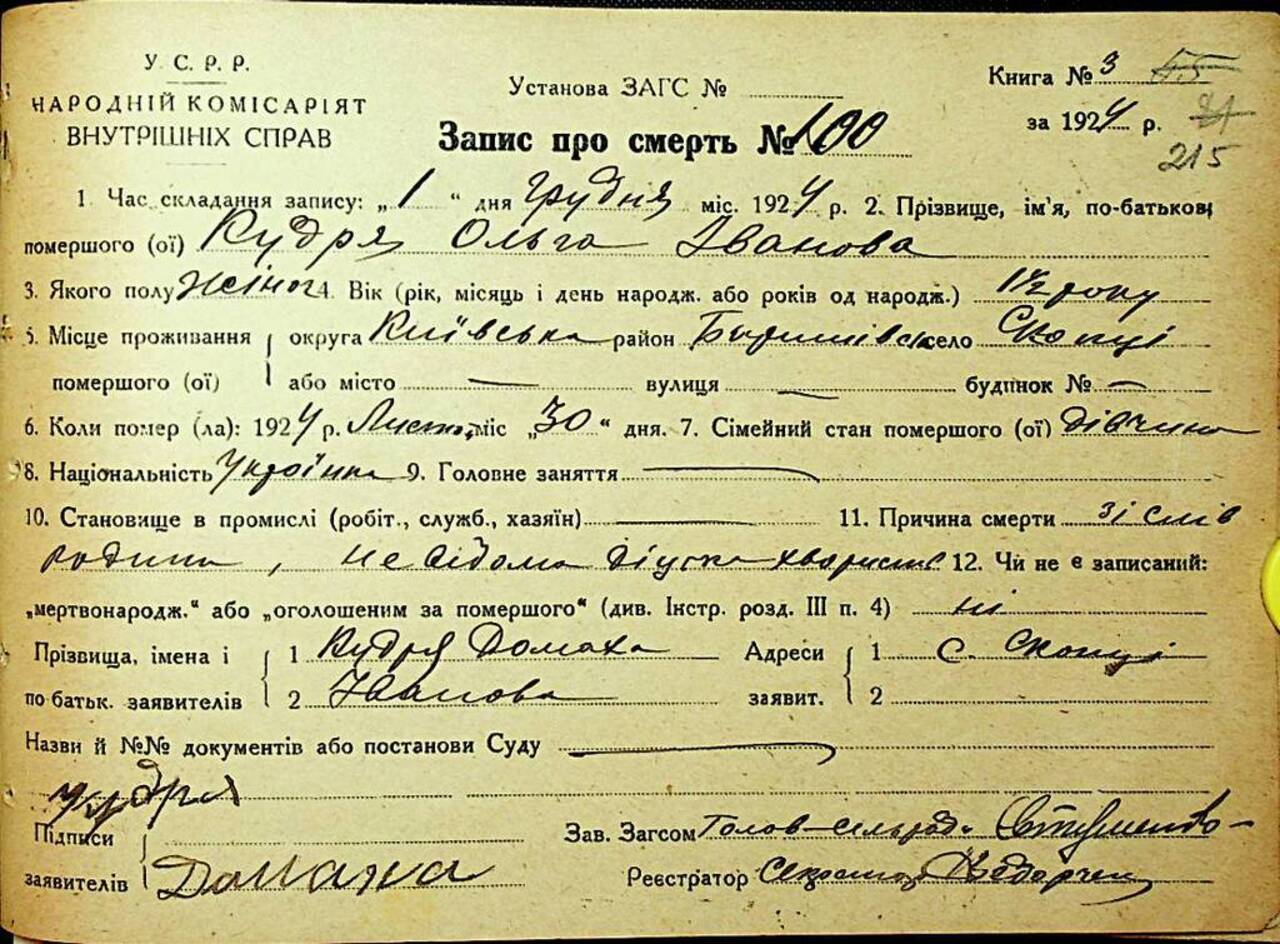 У. С. Р. Р.
НАРОДНІЙ КОМІСАРІЯТ
ВНУТРІШНІХ СПРАВ
Установа ЗАГС №
Книга № 3 55
за 1924 р.
215
Запис про смерть № 100
1. Час складання запису: „1“ дня грудня міс. 1924 р. 2. Прізвище, ім'я, по-батькові
помершого (ої) Кудря Ольга Іванова
3. Якого полу жіног 4. Вік (рік, місяць і день народж. або років од народж.) 1½ року
5. Місце проживання округа Київська район село Скопці
помершого (ої) або місто — вулиця — будинок № —
6. Коли помер (ла): 1924 р. Листоп. міс „30“ дня. 7. Сімейний стан помершого (ої) дівчина
8. Національність Українка 9. Головне заняття —
10. Становище в промислі (робіт., служб., хазяїн) — 11. Причина смерти зі слів
родини, не відома 12. Чи не є записаний:
„мертвонародж.“ або „оголошеним за помершого“ (див. Інстр. розд. III п. 4) ні
Прізвища, імена і 1 Кудря Домаха Адреси 1 с. Скопці
по батьк. заявителів 2 Іванова заявит. 2
Назви й №№ документів або постанови Суду —
Кудря
Підписи
Зав. Загсом Голов. сільрад.
заявителів Домаха
Реєстратор Секретар